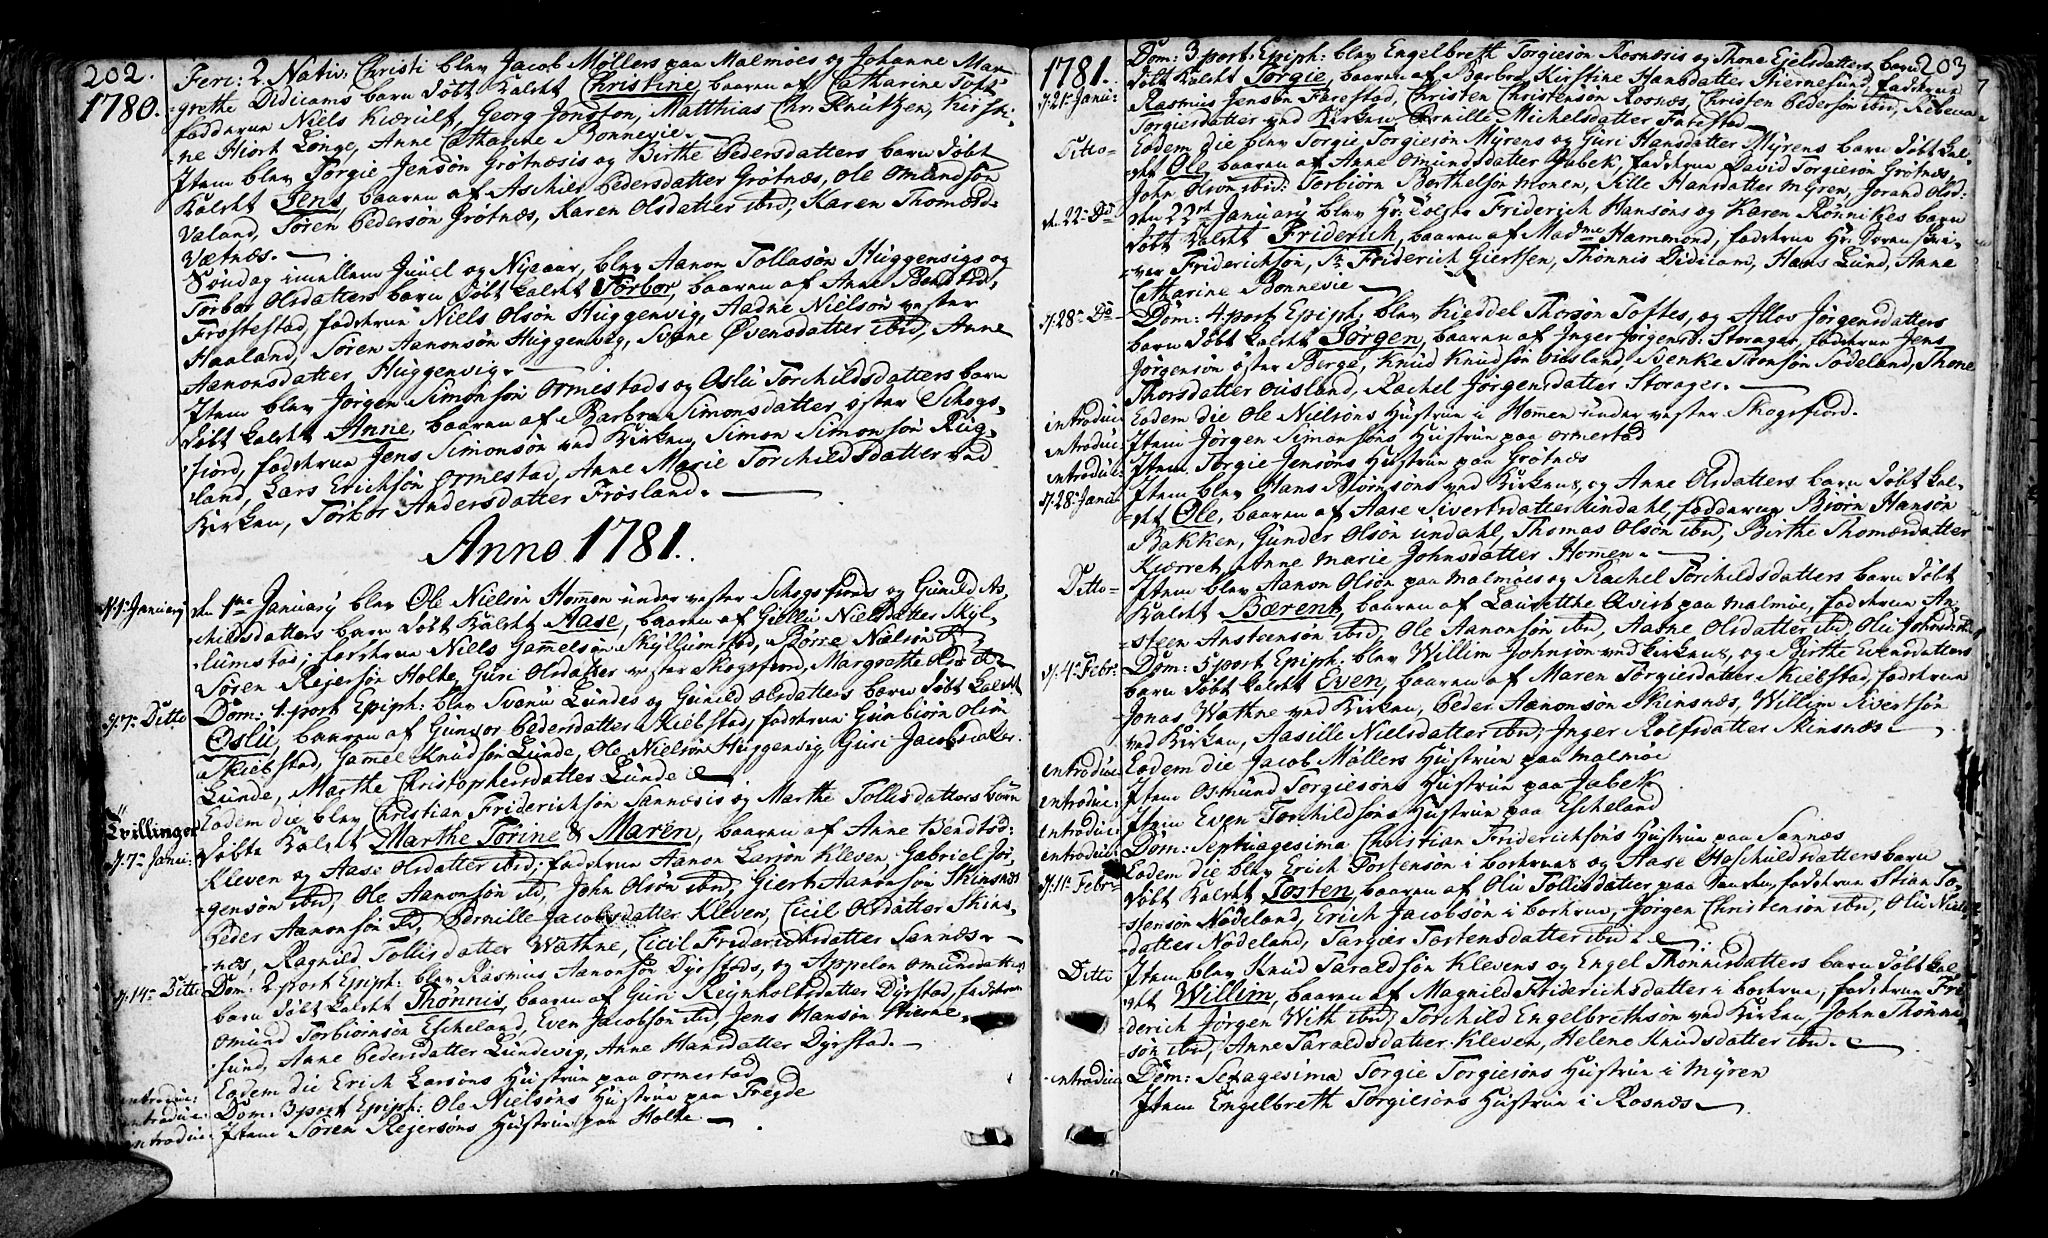 202.
1780.
Feri: 2. Nativ: Christi blev Jacob Møllers paa Malmøes og Johanne Mar
grethe Didicams barn døbt kaldet Christine, baaren af Catharine Toft
fadderne Niels Kiærulf, Georg Jonston, Matthias Chr. Knutzen, Kirsti-
ne Hiort Longe, Anne Catharine Bonnevie.
Item blev Torgie Jensøn Grøtnæsis og Birthe Pedersdatters barn døbt
kaldet Jens, baaren af Aschier Pedersdatter Grøtnæs, Ole Omundsøn
Valand, Søren Pedersøn Grøtnæs, Karen Olsdatter ibid, Karen Thomæsd.
Vatnes.
Søndag imellem Juul og Nyeaar, blev Aanon Tollasøn Huggenvigs og
Torbor Olsdatters barn døbt kaldet Torbor, baaren af Anne Bendtsd,
Frøstestad, fadderne Niels Olsøn Huggenvig, Aadne Nielsøn vester
Haaland, Søren Aanonsøn Huggenvig, Øvensdatter ibid, Anne
Aanonsdatter Huggenvig.
Item blev Jørgen Simonsøn Ormestads og Oslu Torchildsdatters barn
døbt kaldet Anne, baaren af Barbra Simonsdatter øster Schogs-
fiord, fadderne Jens Simonsøn ved Kirken, Simon Simonsøn Rug-
land, Lars Erichsøn Ormestad, Anne Marie Torchildsdatter ved
Kirken, Torbor Andersdatter Frøsland.
Anno 1781.
d. 1. January
den 1ste January blev Ole Nielsøn Homen under vester Schogsfiords og Gunild As-
childsdatters barn døbt kaldet Aase, baaren af Gullu Nielsdatter Skyl-
lumstad, fadderne Niels Gamelsøn Skyllumstad, Børre Nielsøn ibd
Søren Rejersøn Holte, Guri Olsdatter vester Skogsfiord, Margrethe Olsd
d. 7. Ditto
Dom: 1. post Epiph: blev Svenu Lundes og Gunild Olsdatters barn døbt kaldet
Oslu, baaren af Gunvor Pedersdatter Skiebstad, fadderne Gunbiørn Olsøn
Skiebstad, Gamel Knudsøn Lunde, Ole Nielsøn Huggenvig, Guri Jacobsdatter
Lunde, Marthe Christophersdatter Lunde
Tvillinger
d. 7. Janu:
Eadem die blev Christian Friderichsøn Sannæsis og Marthe Tollisdatters børn
døbte kaldet Marthe Torine & Maren, baaren af Anne Bendtsd:
Kleven og Aase Olsdatter ibid; fadderne Aanon Larsøn Kleven, Gabriel Jør-
gensøn ibid, Ole Aanonsøn ibd, John Olsøn ibid, Giert Aanonsøn Skinsnæs
Peder Aanonsøn ibd, Pernille Jacobsdatter Kleven, Cicil Olsdatter Skins-
næs, Ragnild Tollisdatter Wathne, Cicil Friderichsdatter Sannæs.
d. 14. Ditto
Dom: 2. post Epiph: blev Rasmus Aanonsøn Dyrstads, og Appelon Omunsdatters
barn døbt kaldet Thønnis, baaren af Guri Reynholtsdatter Dyrstad, fadderne
Omund Torbiornsøn Escheland, Even Jacobsøn ibid, Jens Hansøn Stierne-
sund, Anne Pedersdatter Lundevig, Anne Hansdatter Dyrstad.
introdue:
Eadem die Erich Larsøns Hustrue paa Ormestad
introdue:
Dom: 3. post Epiph: Ole Nielsøns Hustrue paa Fregde
introdue:
Item Søren Rejersøns Hustrue paa Holte
203
1781.
d. 21. Janu:
Dom: 3. post Epiph: blev Engelbreth Torgiesøn Rosnæsis og Thone Ejelsdatters barn
døbt kaldet Torgie, baaren af Barbra Kirstine Hansdatter Stiernesund, fadderne
Rasmus Jensøn Farestad, Christen Christensøn Rosnæs, Christen Pedersøn ibid, Rebecca
Torgiersdatter ved Kirken, Pernille Michelsdatter Farestad
Ditto
Eadem die blev Torgie Torgiesøn Myrens og Guri Hansdatter Myrens barn døbt kal-
det Ole, baaren af Anne Omundsdatter Jabek, fadderne David Torgiesøn Grøtnæs,
John Olsøn ibid: Torbiørn Berthelsøn Monen, Sille Hansdatter Myren, Jorand Olsd:
d. 22. Do
den 22de January blev Hr: Friderich Hansøns og Karen Rønnikes barn
døbt kaldet Friderich, baaren af Madme Hammond, fadderne Hr: Soren skri-
ver Friderichsøn, Sr. Friderich Giertsen, Thønnis Didicam, Hans Lund, Anne
Catharine Bonnevie
d. 28. Do
Dom: 4. post Epiph: blev Kieddel Thorsøn Toftes, og Allov Jørgensdatters
barn døbt kaldet Jørgen, baaren af Inger Jørgensd: Storager, fadderne Jens
Jørgensøn øster Berge, Knud Knudsøn Ousland, Svenke Tronsøn Sodeland, Thone
Thorsdatter Ousland, Rachel Jørgensdatter Storager.
introdue:
Eadem die Ole Nielsøns Hustrue i Homen under vester Skogsfiord.
introdue:
Item Jørgen Simonsøns Hustrue paa Ormestad
introdue:
Item Torgie Jensøns Hustrue paa Grøtnæs
d. 28. Janu:
Item blev Hans Biørnsøns ved Kirkens, og Anne Olsdatters barn døbt kal-
det Ole, baaren af Aase Sivertsdatter Undahl, fadderne Biørn Hansøn
Bakken, Gunder Olsøn Undahl, Thomas Olsøn ibid, Birthe Thomæsdatter
Kiærret, Anne Marie Johnsdatter Homen
Ditto
Item blev Aanon Olsøn paa Malmøes og Rachel Torchildsdatters barn døbt
kaldet Bærent, baaren af Laurettke Qvist paa Malmøe, fadderne An-
steen Ansteensøn ibid, Ole Aanonsøn ibid, Aasne Olsdatter ibd, Oli
d. 4. Febr:
Dom: 5. post Epiph: blev Willim Johnsøn ved Kirkens, og Birthe Evensdatters
barn døbt kaldet Even, baaren af Maren Torgiersdatter Skiebstad, fadderne
Jonas Wathne ved Kirken, Peder Aanonsøn Skinsnæs, Willim Sivertsøn
ved Kirken, Aasille Nielsdatter ibid, Inger Rolfsdatter Skinsnæs
introdue:
Eadem die Jacob Møllers Hustrue paa Malmøe
introdue:
Item Osmund Torgiesøns Hustrue paa Jabek
introdue:
Item Even Torchildsøns Hustrue paa Escheland
introdue:
Dom: Septuagesima Christian Friderichsøns Hustrue paa Sannæs
d. 11. Febr:
Eadem die blev Erich Tostensøn i borkenes og Aase Haschuldsdatters barn
døbt kaldet Tosten, baaren af Oli Tollisdatter paa Sanden, fadderne Stian To-
stensøn Nodeland, Erich Jacobsøn i borkene, Jørgen Christensøn ibid, Oli Niels
datter Nodeland, Targier Tostensdatter ibid
Ditto
Item blev Knud Taraldsøn Klevens og Engel Thønnisdatters barn døbt kal-
det Willim, baaren af Magnild Friderichsdatter i borkene, fadderne Fri-
derich Jørgen With ibid, Torchild Engelbrethsøn ved Kirken, John Thønni
søn ibid, Anne Taraldsdatter Kleven, Helene Knudsdatter ibid.
introdue
Dom: Sexagesima Torgie Torgiesøns Hustrue i Myren
Item Engelbreth Torgiesøns Hustrue i Rosnæs